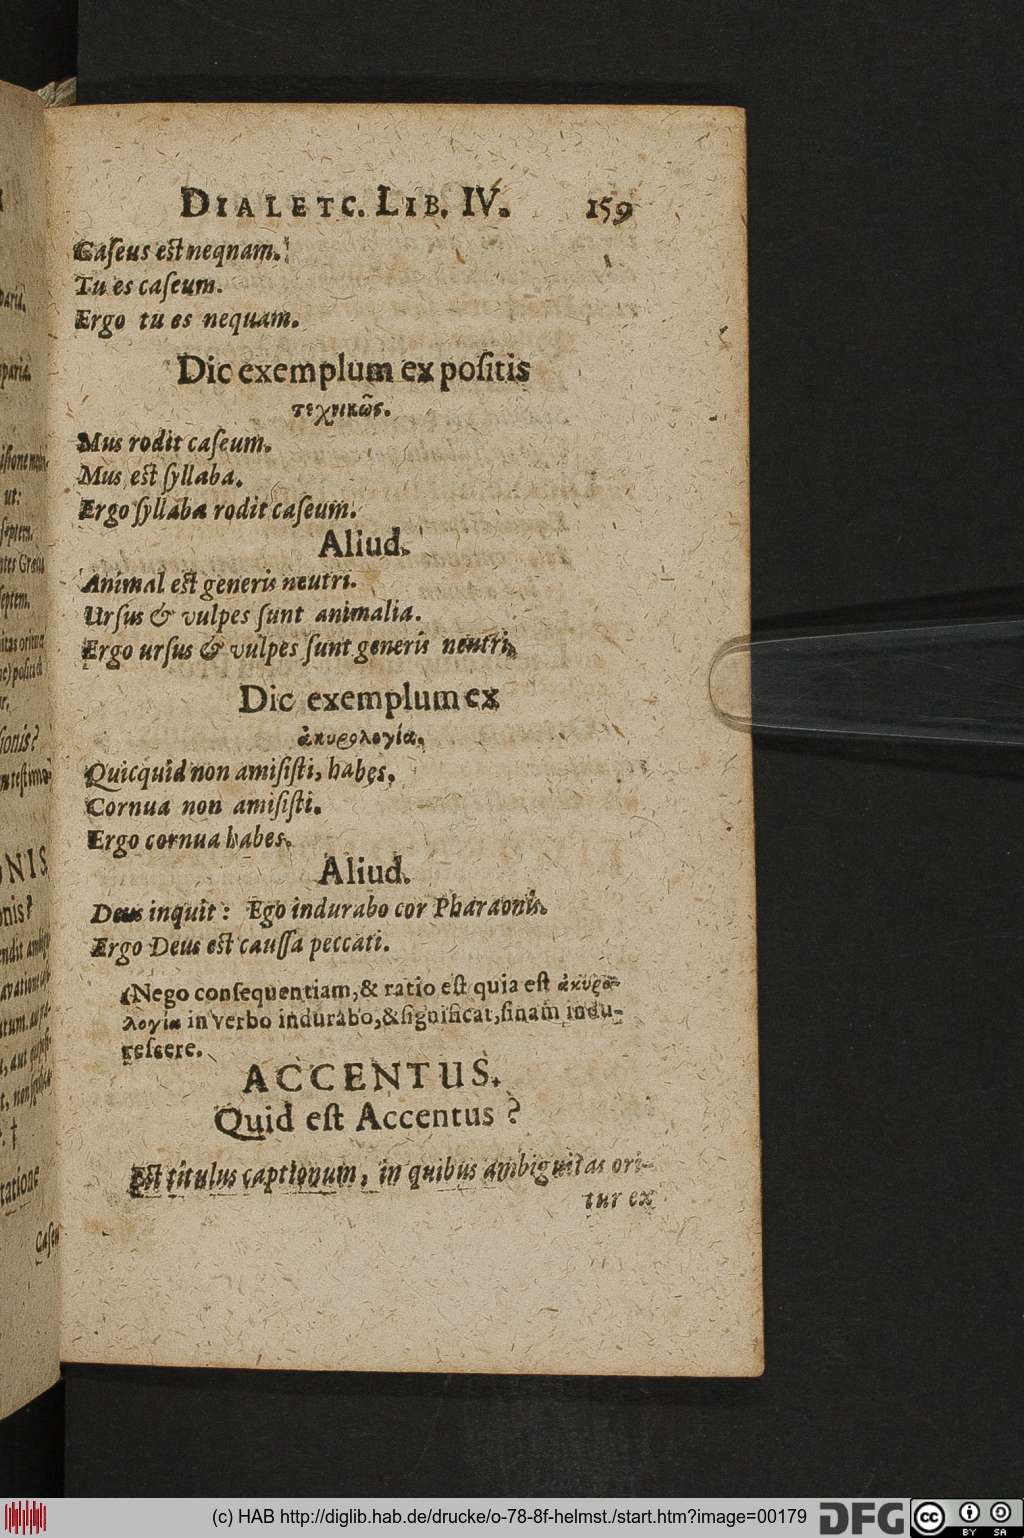 DIALETC. LIB. IV. 159
Caſeus est neqnam.
Tu es caſeum.
Ergo tu es nequam.
Dic exemplum ex poſitis
τεχνικῶς.
Mus rodit caſeum.
Mus est ſyllaba.
Ergo ſyllaba rodit caſeum.
Aliud.
Animal est generis neutri.
Urſus & vulpes ſunt animalia.
Ergo urſus & vulpes ſunt generis neutri.
Dic exemplum ex
ἀκυρολογία.
Quicquid non amiſiſti, habes.
Cornua non amiſiſti.
Ergo cornua habes.
Aliud.
Deus inquit: Ego indurabo cor Pharaonis.
Ergo Deus est cauſſa peccati.
(Nego conſequentiam, & ratio eſt quia eſt ἀκυρο-
λογία in verbo indurabo, & ſignificat, ſinam indu-
reſcere.
ACCENTUS.
Quid eſt Accentus?
Est titulus captionum, in quibus ambiguitas ori-
tur ex
paria.
ut:
ſeptem.
ſeptem.
ſionis?
ONIS
onis?
tatione
Caſeu
(c) HAB http://diglib.hab.de/drucke/o-78-8f-helmst./start.htm?image=00179
DFG
cc
BY SA